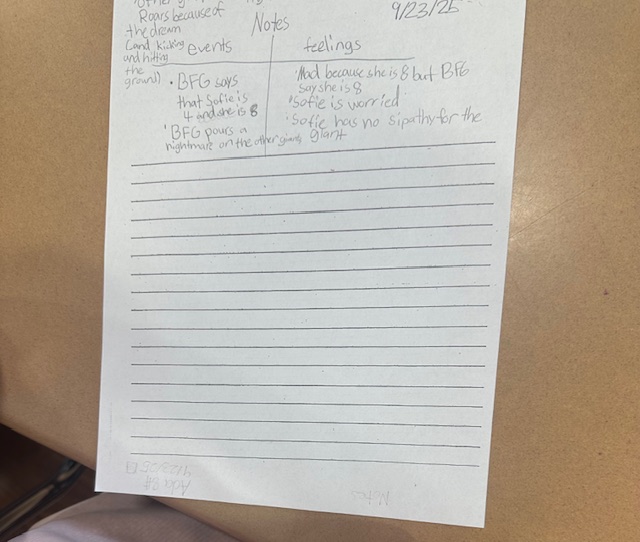 Roars because of
the dream
(and kicking
and hitting
the
ground)
Notes
9/23/25
events
feelings
• BFG says
that Sofie is
4 and she is 8
• BFG pours a
nightmare on the other giants
Mad because she is 8 but BFG
say she is 8
• Sofie is worried
• Sofie has no sipathy for the
giant